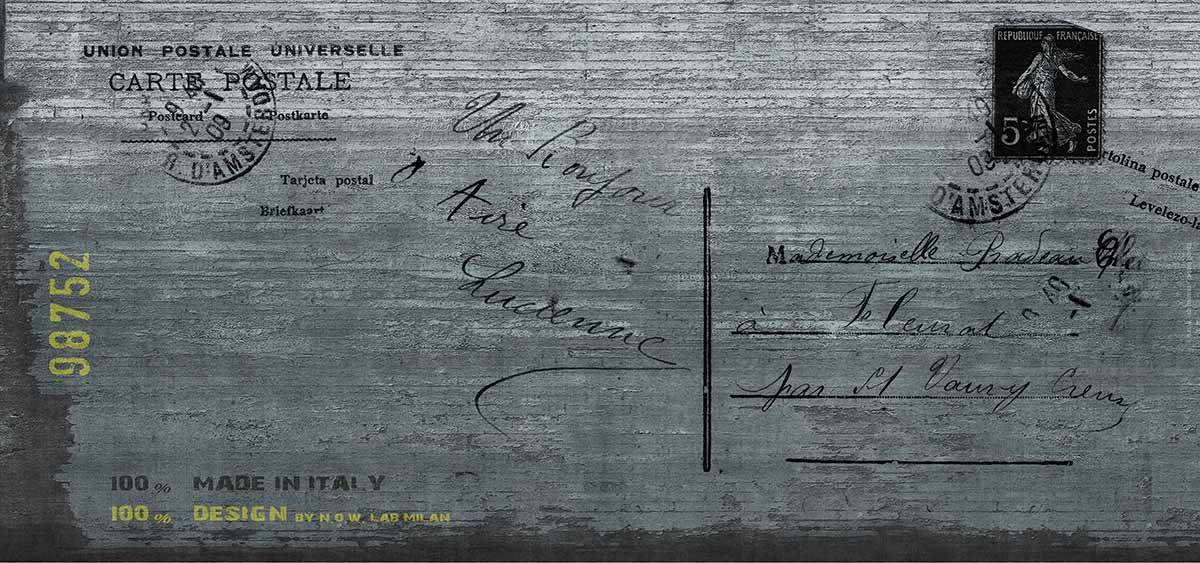 UNION POSTALE UNIVERSELLE
CARTE POSTALE
Postcard Postkarte
R. D'AMSTERD
Tarjeta postal
Briefkaart
Un Bonjour
Aimé
Lucienne
REPUBLIQUE FRANÇAISE
5c
POSTES
D'AMSTER
rtolina postale
Levelezo-l
Mademoiselle
à Fleurat
par St Vaury Creuse
98752
100 % MADE IN ITALY
100 % DESIGN BY N.O.W. LAB MILAN